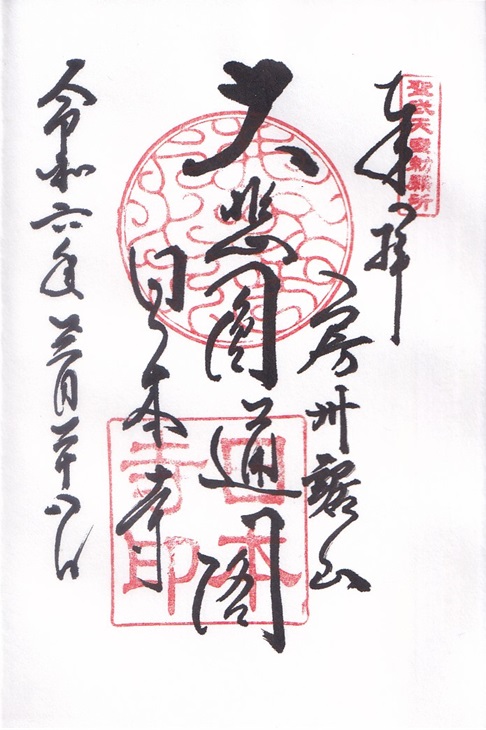 聖武天皇勅願所
奉拝
房州鋸山
大悲圓通閣
日本寺
日本寺印
令和六年三月二十八日